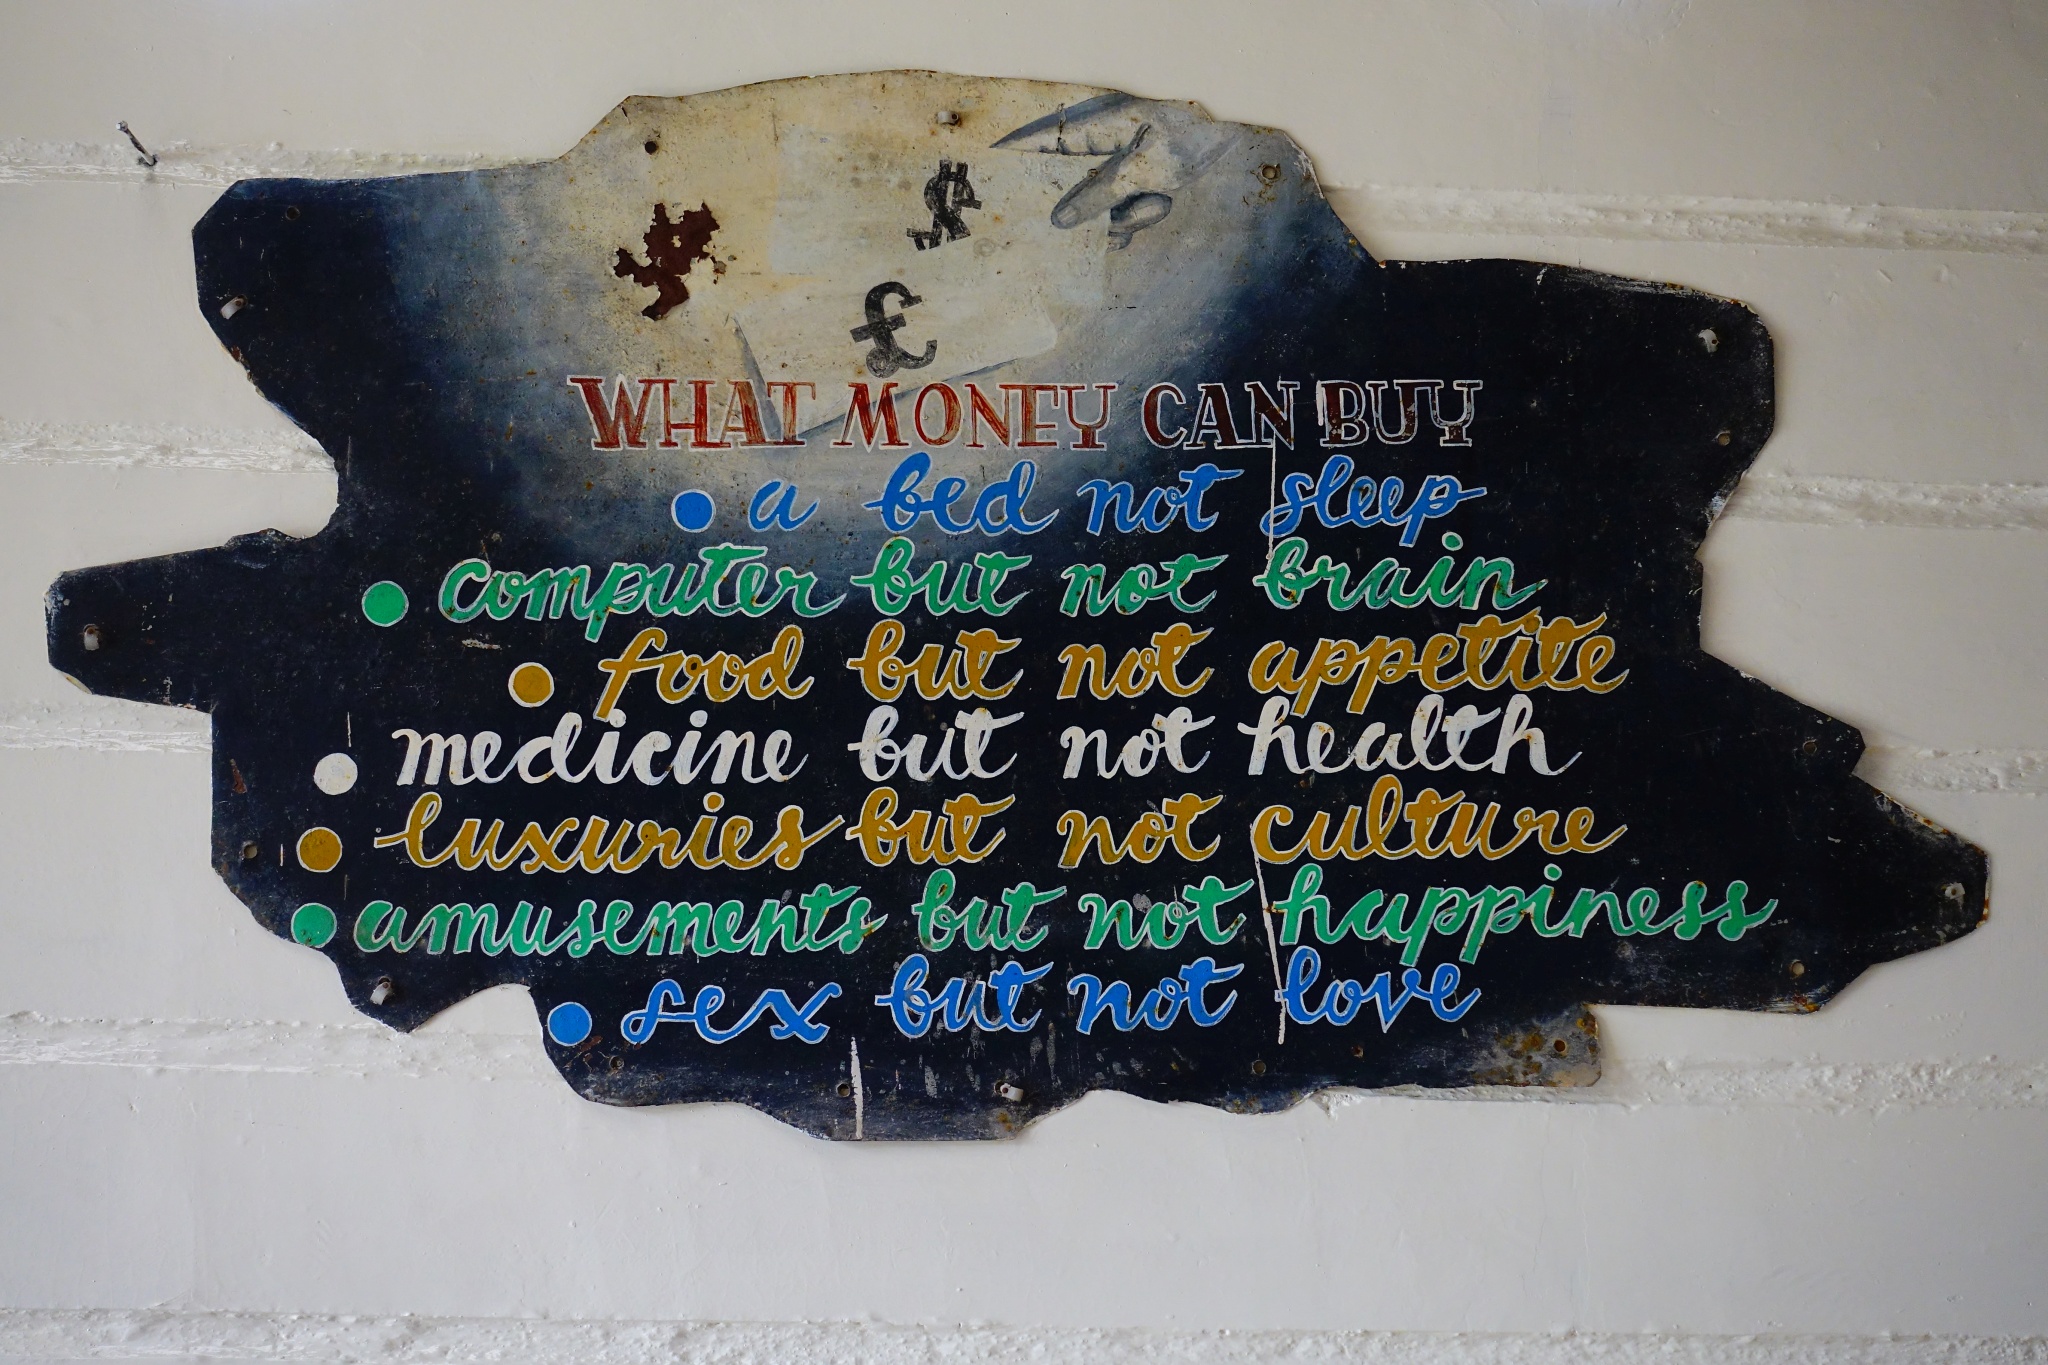 $
£
WHAT MONEY CAN BUY
• a bed not sleep
• computer but not brain
• food but not appetite
• medicine but not health
• luxuries but not culture
• amusements but not happiness
• sex but not love